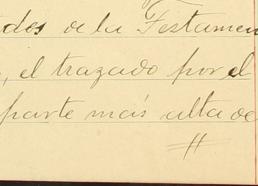 dos de la Testamen
, el trazado por el
parte más alta de